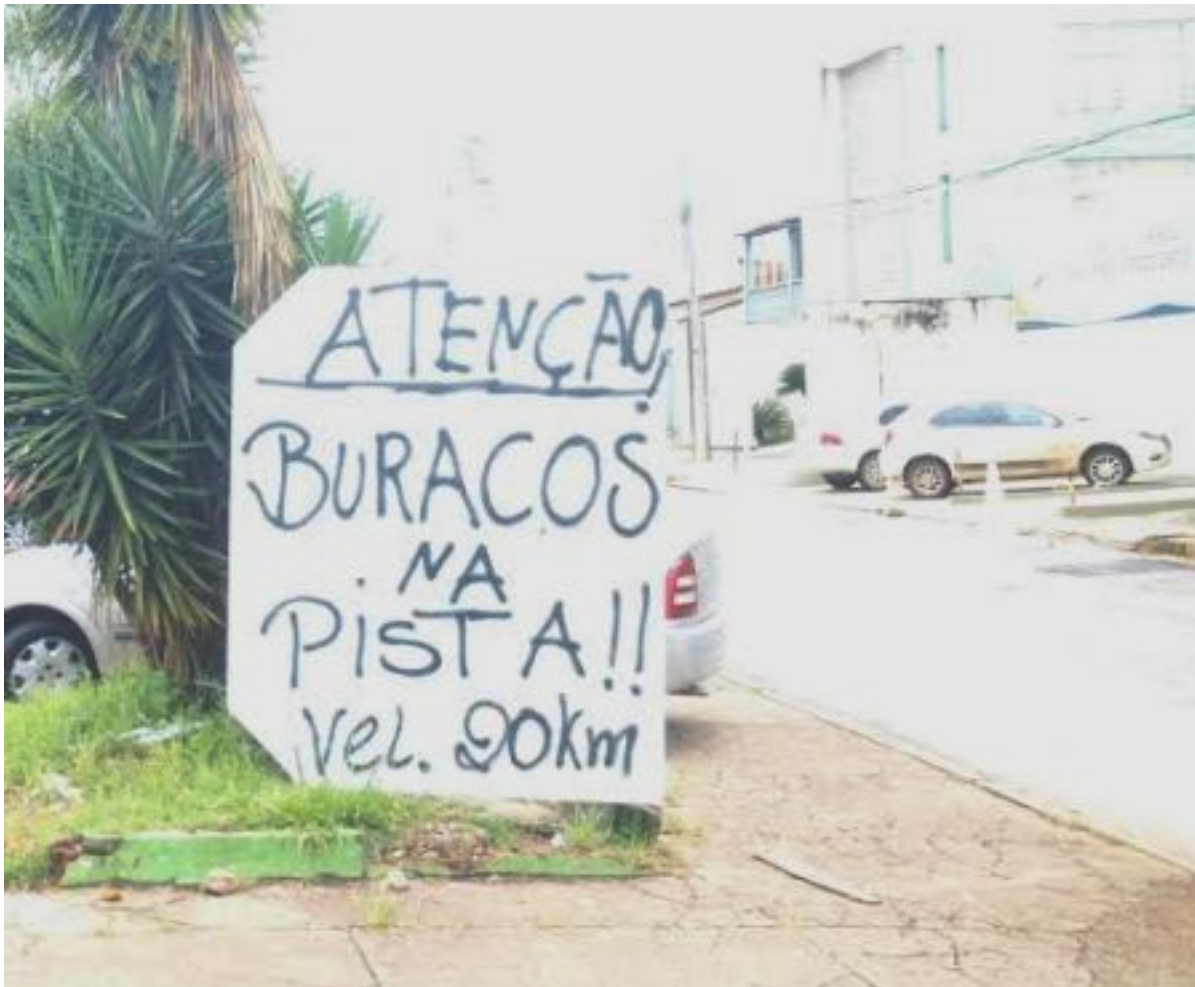 ATENÇÃO,
BURACOS
NA
PISTA!!
Vel. 20km